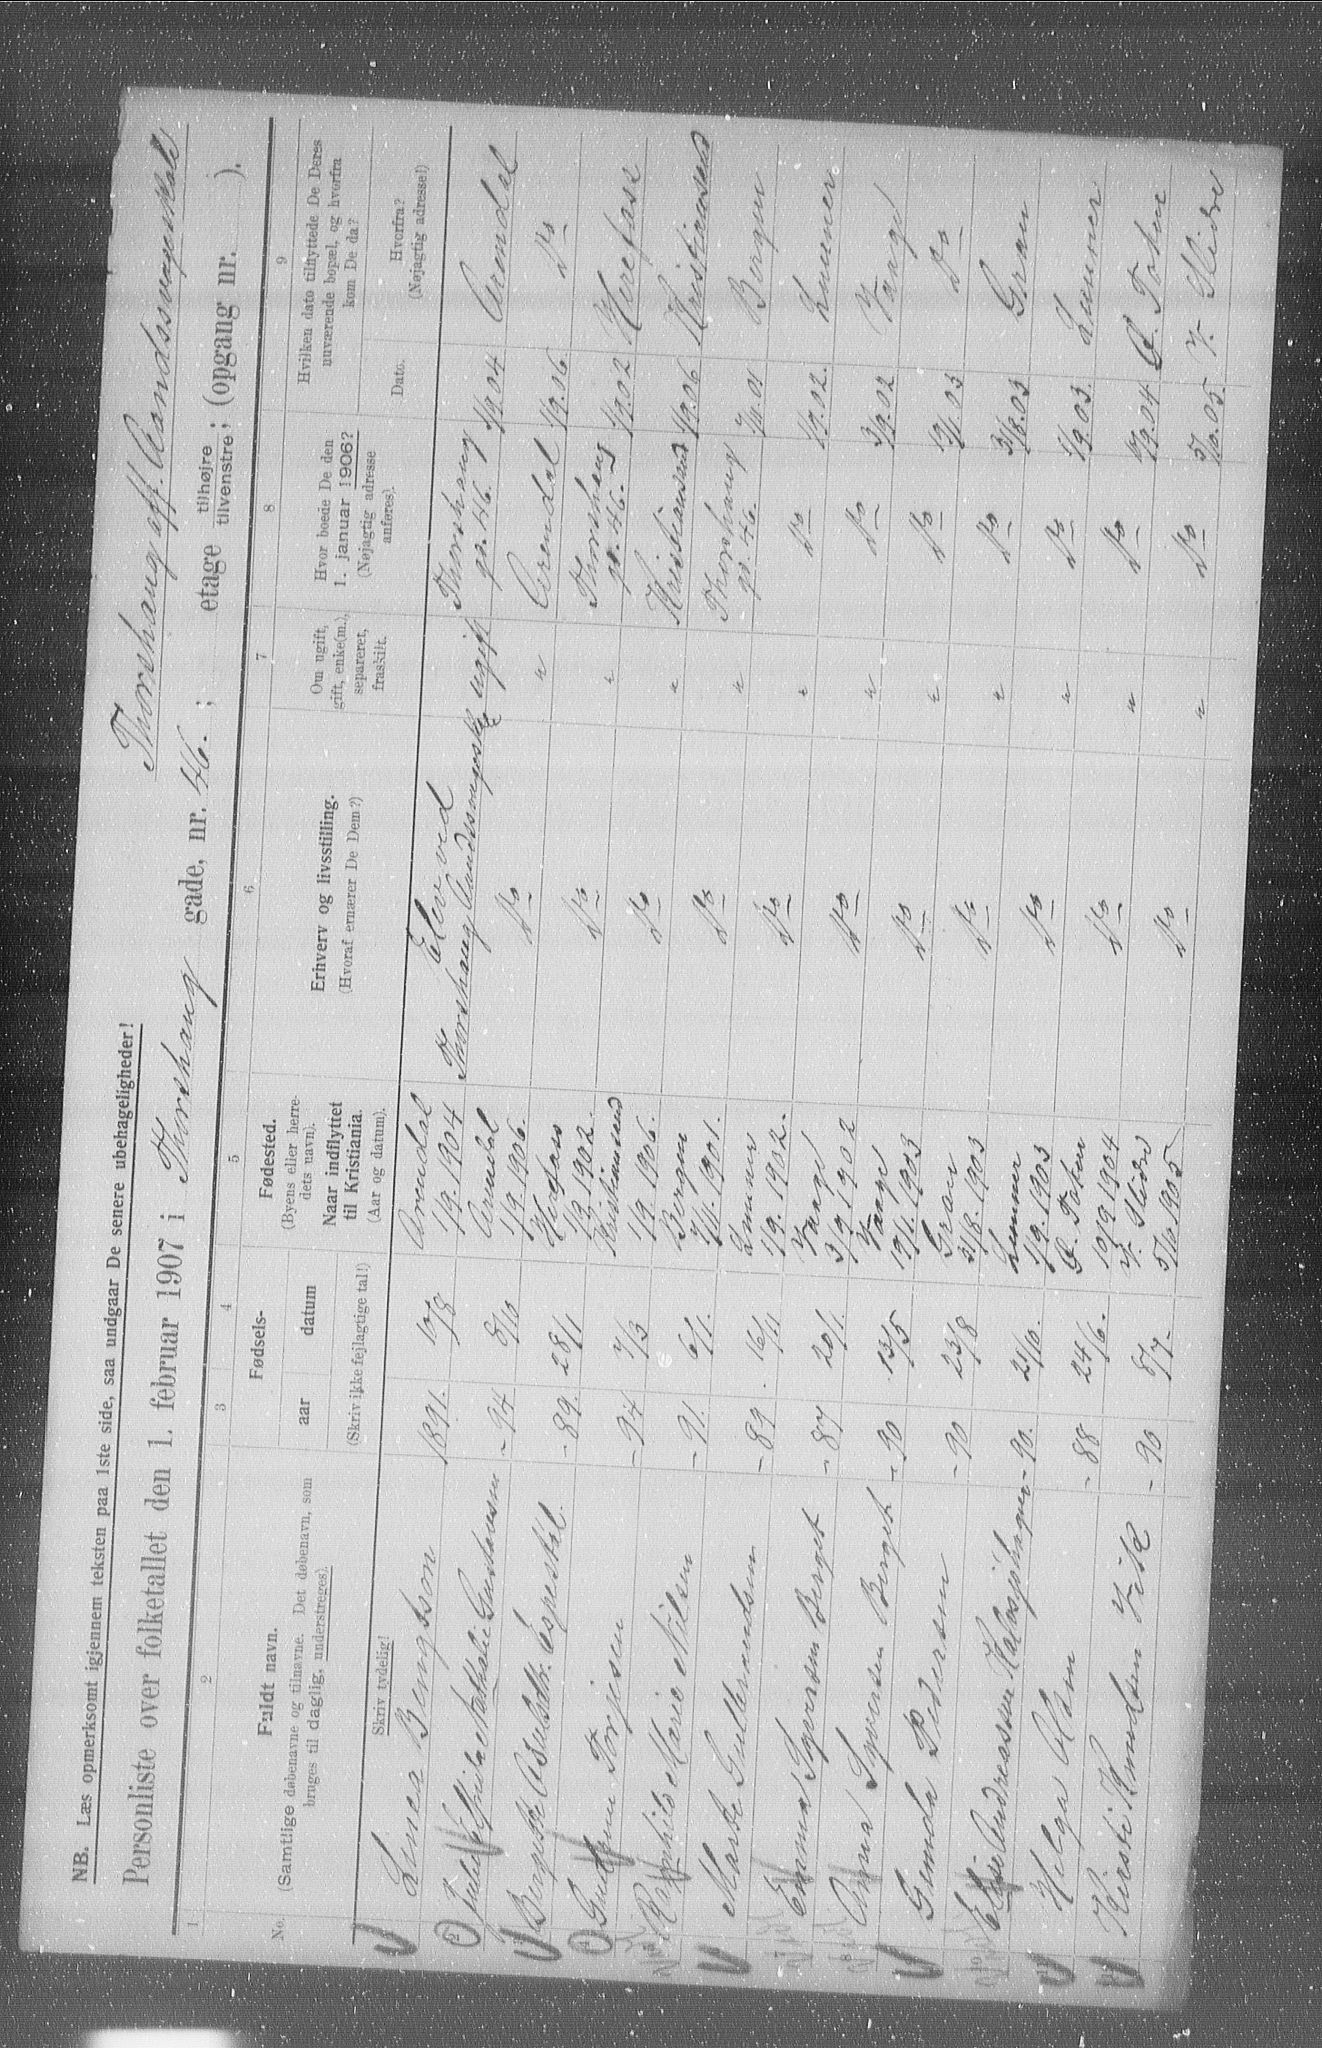 NB. Læs opmerksomt igjennem teksten paa 1ste side, saa undgaar De senere ubehageligheder!
Thorshaug off. Aandssvageskole
Personliste over folketallet den 1. februar 1907 i Thorshaug gade, nr. 46. ; etage tilhøjre tilvenstre ; (opgang nr. ).
1 2 3 4 5 6 7 8 9
No.
Fuldt navn.
(Samtlige døbenavne og tilnavne. Det døbenavn, som
bruges til daglig, understreges).
Skriv tydelig!
Fødsels-
aar datum
(Skriv ikke fejlagtige tal!)
Fødested.
(Byens eller herre-
dets navn).
Naar indflyttet
til Kristiania.
(Aar og datum).
Erhverv og livsstilling.
(Hvoraf ernærer De Dem?)
Om ugift,
gift, enke(m.),
separeret,
fraskilt.
Hvor boede De den
1. januar 1906?
(Nøjagtig adresse
anføres).
Hvilken dato tilflyttede De Deres
nuværende bopæl, og hvorfra
kom De da?
Dato. Hvorfra?
(Nøjagtig adresse!)
Linea Bengtson 1891. 10/8 Arendal 1/9. 1904 Elev ved Thorshaug Aandssvageskole ugift Thorshaug gt. 46. 1/9.04 Arendal
2 Gustavesen - 94 8/10 Arendal 1/9 1906. do " Arendal 1/9.06 do
Bergitte Espestøl. - 89. 28/1 1/9 1902. do " Thorshaug gt. 46. 1/9.02 Herefoss
Torjesen - 94 7/3 Kristiansand 1/9. 1906. do " Kristiansand 1/9.06 Kristiansand
Ragnhild Marie Nilsen - 91. 6/1. Bergen 7/11. 1901. do " Thorshaug gt. 46. 7/11.01 Bergen
Marte Gulbrandsen - 89. 16/11 Lunner 1/9. 1902. do " do 1/9.02. Lunner
Emma Syversen Berget - 87 20/1. Vang 3/9 1902 do " do 3/9.02 Vang
8 Anna Syversen Berget - 90 13/5 Vang 19/1. 1903 do " do 19/1.03 do
Gunda Pedersen - 90 23/8 Gran 31/8. 1903 do " do 31/8.03 Gran
Elise Andreassen - 90. 21/10. Lunner 1/9. 1903 do " do 1/9.03. Lunner
11 Helga Olsen - 88 24/6. Ø. Toten 10/9 1904 do " do 10/9.04 Ø. Toten
Kirsti Knudsen Vik - 90 8/7. V. Slidre do " do V. Slidre